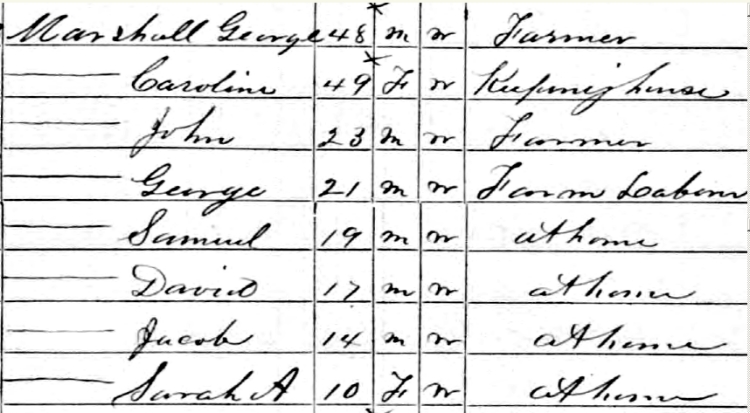 Marshall George 48 m w Farmer
—— Caroline 49 F w Keeping house
—— John 23 m w Farmer
—— George 21 m w Farm Labour
—— Samuel 19 m w at home
—— David 17 m w at home
—— Jacob 14 m w at home
—— Sarah A 10 F w at home